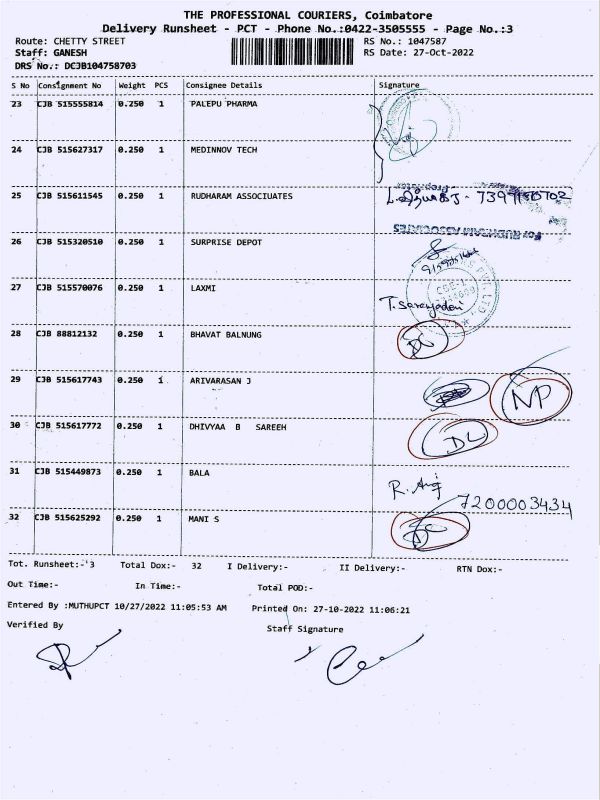 THE PROFESSIONAL COURIERS, Coimbatore
Delivery Runsheet - PCT - Phone No.:0422-3505555 - Page No.:3
Route: CHETTY STREET RS No.: 1047587
Staff: GANESH RS Date: 27-Oct-2022
DRS No.: DCJB104758703
S No Consignment No Weight PCS Consignee Details Signature
23 CJB 515555814 0.250 1 PALEPU PHARMA
24 CJB 515627317 0.250 1 MEDINNOV TECH
25 CJB 515611545 0.250 1 RUDHARAM ASSOCIUATES
For RUDHRAM ASSOCIATES
Proprietor
26 CJB 515320510 0.250 1 SURPRISE DEPOT
27 CJB 515570076 0.250 1 LAXMI T. Saranyadevi
28 CJB 88812132 0.250 1 BHAVAT BALNUNG
29 CJB 515617743 0.250 1 ARIVARASAN J NP
30 CJB 515617772 0.250 1 DHIVYAA B SAREEH DL
31 CJB 515449873 0.250 1 BALA 7200003434
32 CJB 515625292 0.250 1 MANI S
Tot. Runsheet:- 3 Total Dox:- 32 I Delivery:- II Delivery:- RTN Dox:-
Out Time:- In Time:- Total POD:-
Entered By :MUTHUPCT 10/27/2022 11:05:53 AM Printed On: 27-10-2022 11:06:21
Verified By Staff Signature